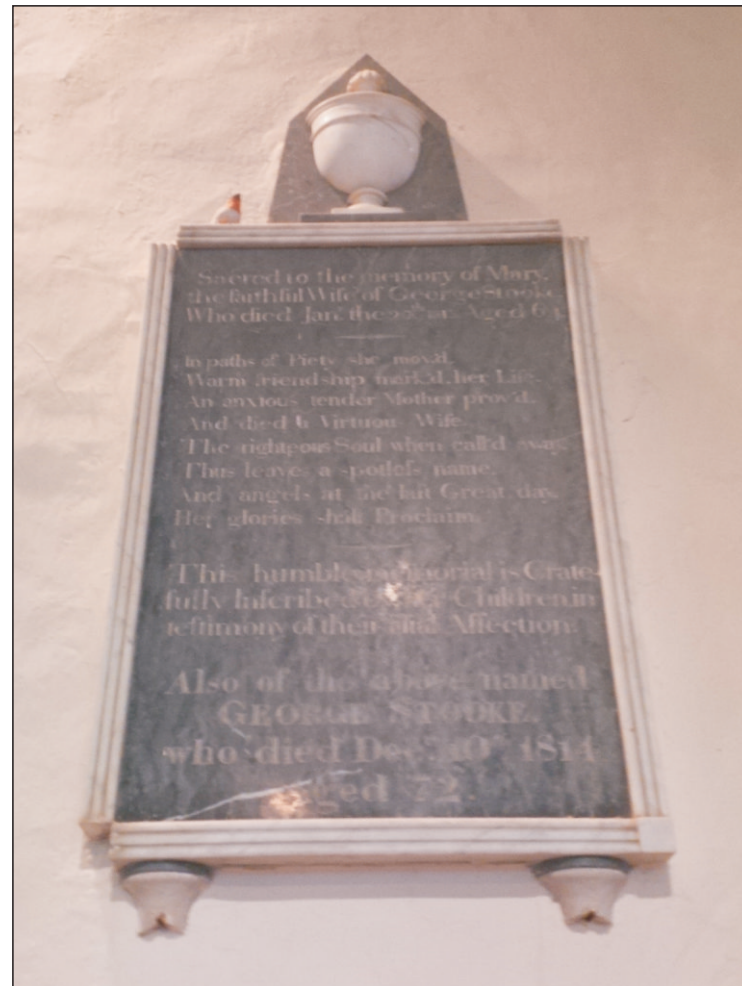 Sacred to the memory of Mary,
the faithful Wife of George Stooke,
Who died Jan.y the Aged 63.
In paths of Piety she mov'd,
Warm friendship mark'd her Life.
An anxious tender Mother prov'd,
And died a Virtuous Wife.
The righteous Soul when call'd away
Thus leaves a spotleſs name.
And angels at the laſt Great day.
Her glories shall Proclaim.
This humble memorial is Grate-
fully Inſcribed by her Children in
teſtimony of their filial Affection.
Also of the above named
GEORGE STOOKE.
who died Dec. 10th 1814
aged 72.